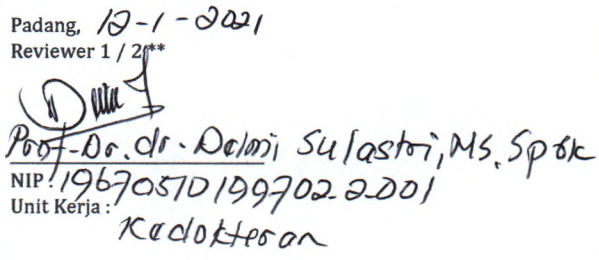 Padang, 12-1-2021
Reviewer 1 / 2 **
Prof. Dr. dr. Delmi Sulastri, MS, SpGK
NIP : 19670510 199702-2-001
Unit Kerja :
Kedokteran